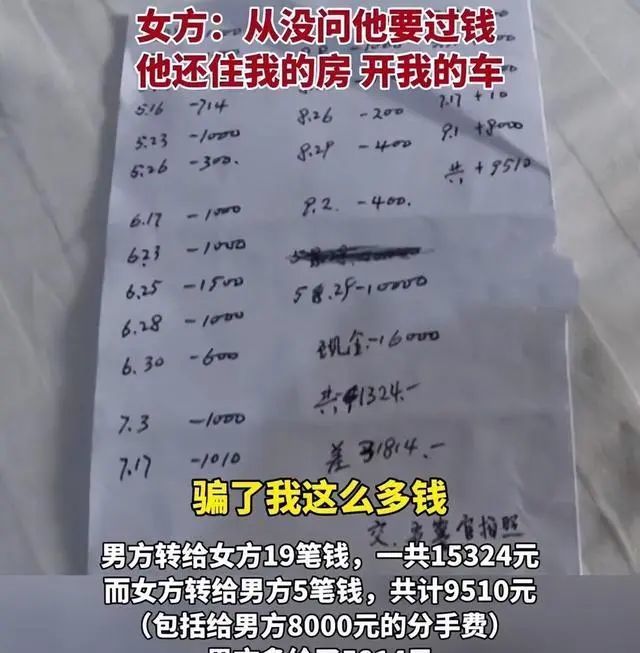 女方：从没问他要过钱
他还住我的房 开我的车
5.16 -714
5.23 -1000
5.26 -300.
6.17 -1000
6.23 -1000
6.25 -1500
6.28 -1000
6.30 -600
7.3 -1000
7.17 -1010
8.26 -200
8.29 -400
9.2. -400.
5.29 -10000
现金 -16000
共 41324.-
差 31814.-
7.17 +10
9.1 +8000
共 +9510
骗了我这么多钱
男方转给女方19笔钱，一共15324元
而女方转给男方5笔钱，共计9510元
（包括给男方8000元的分手费）